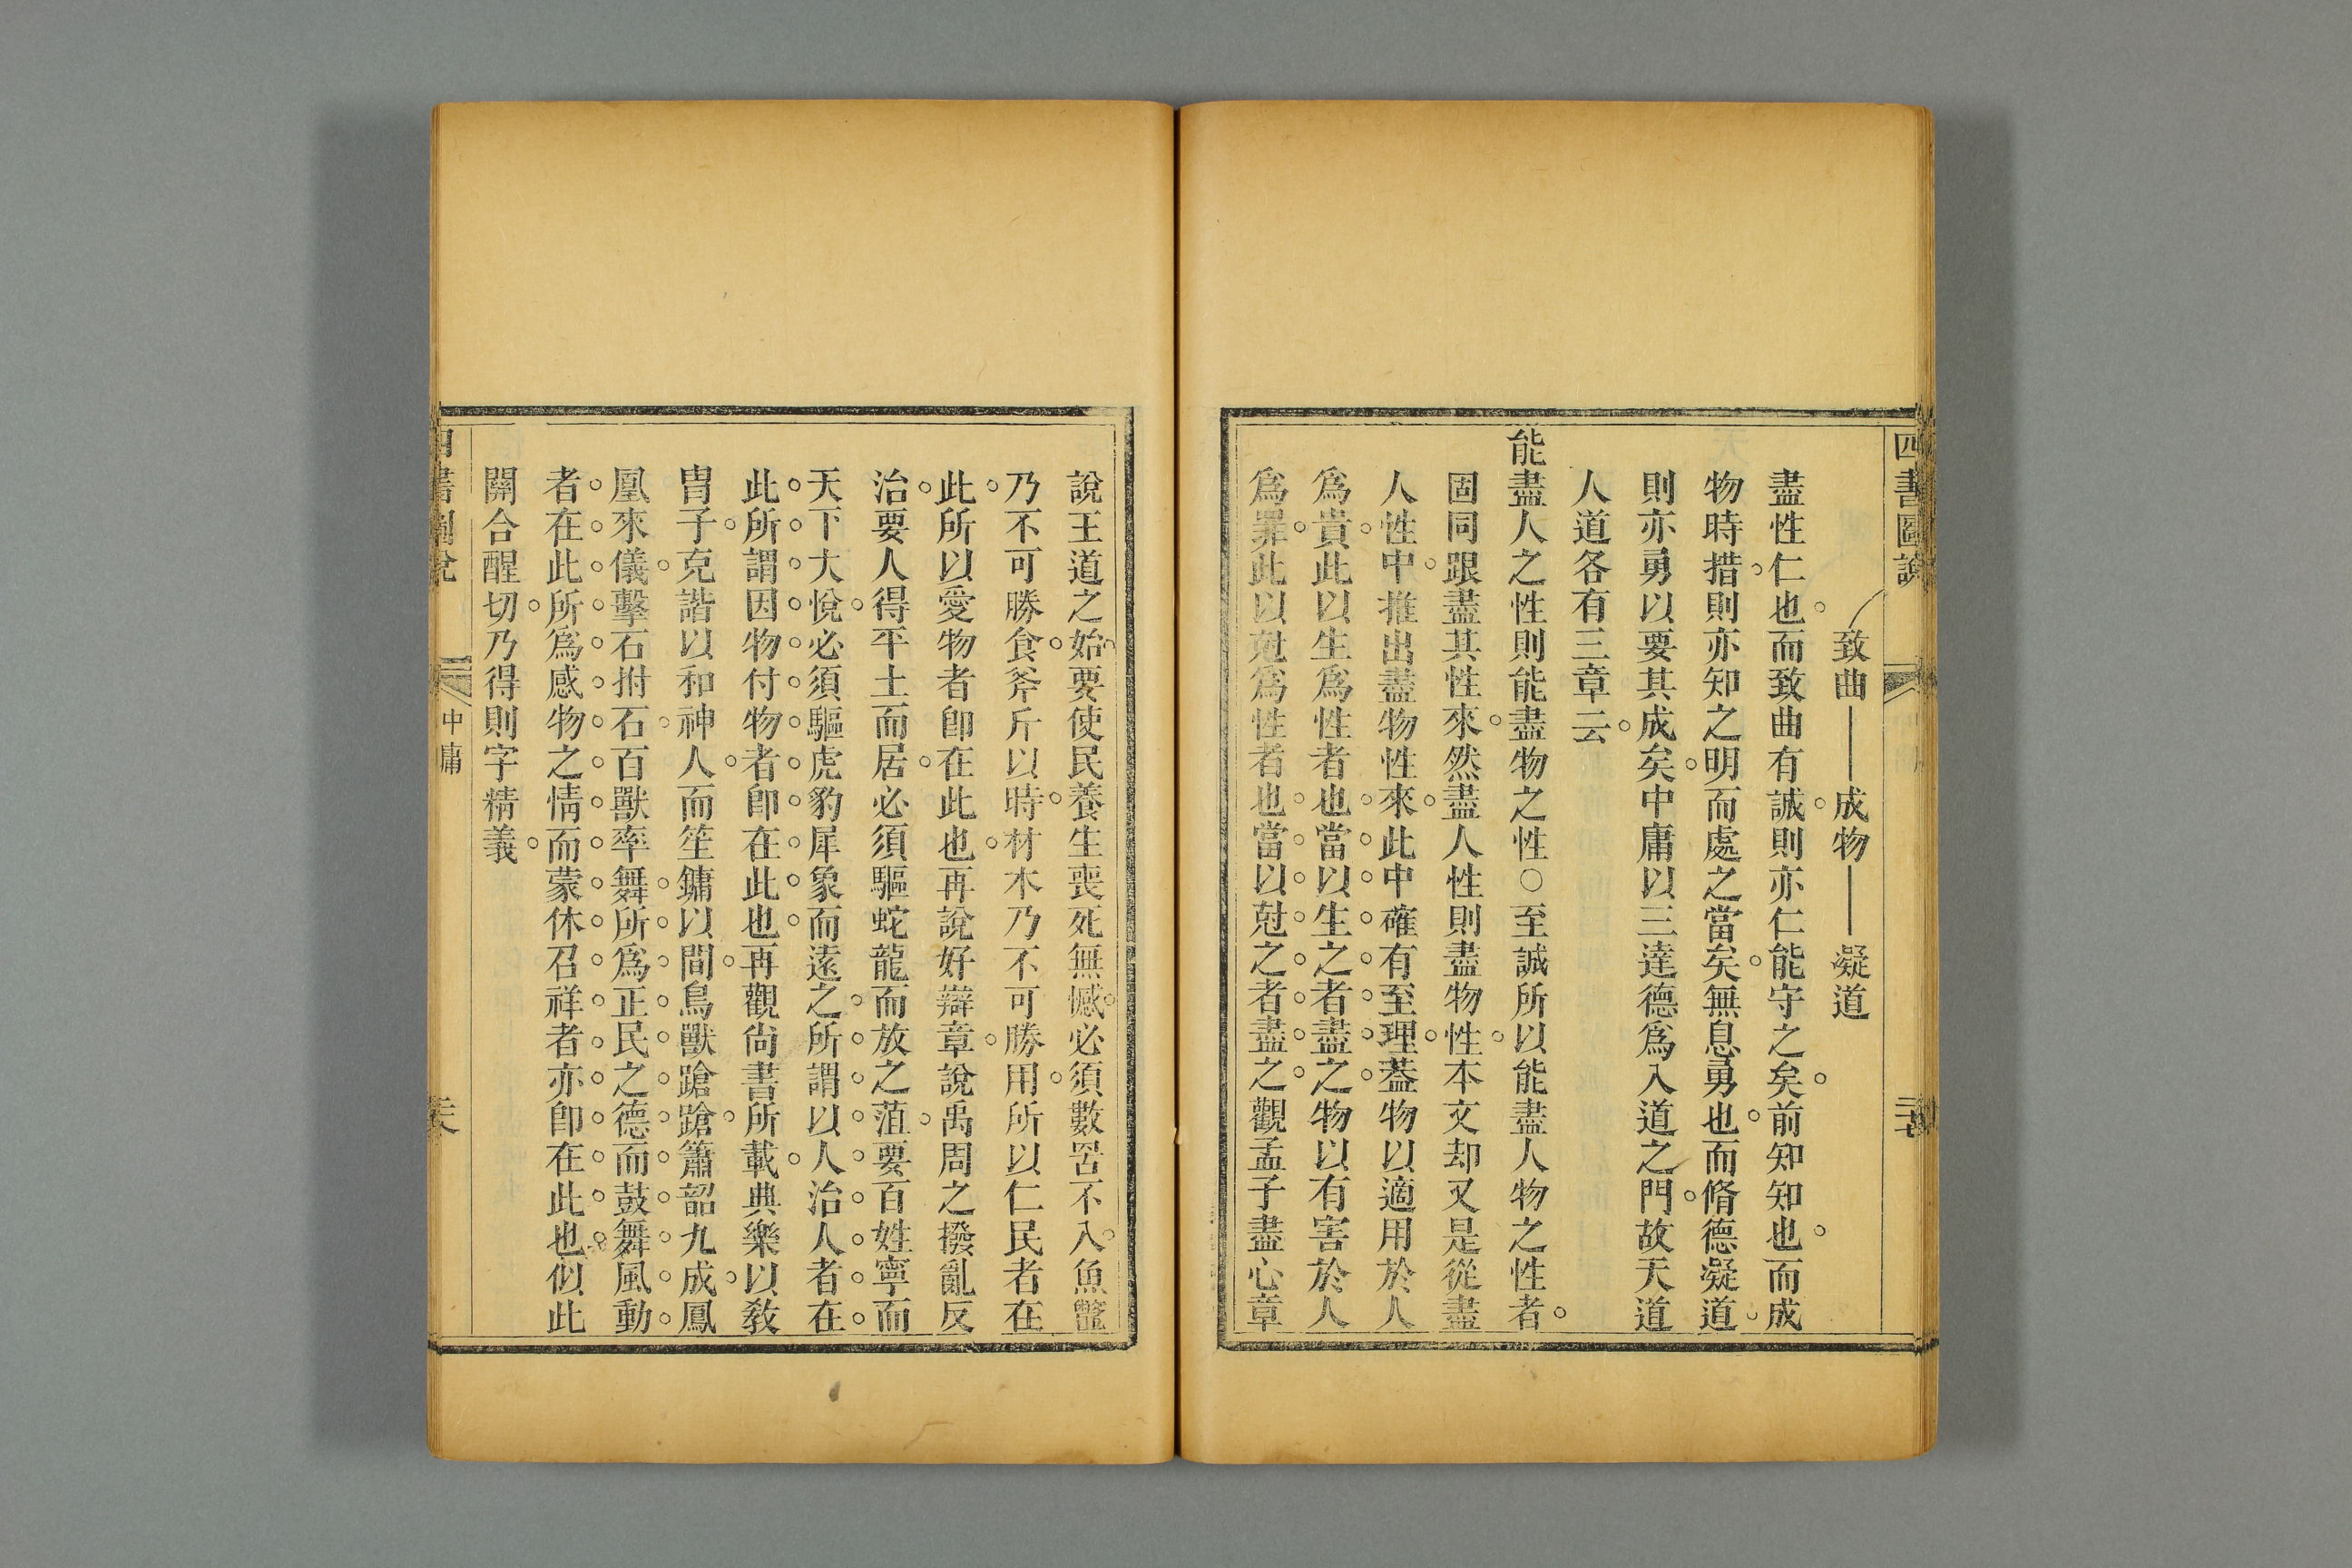 四書圖說
致曲——成物——凝道
盡性仁也而致曲有誠則亦仁能守之矣前知知也而成
物時措則亦知之明而處之當矣無息勇也而脩德凝道
則亦勇以要其成矣中庸以三達德爲入道之門故天道
人道各有三章云
能盡人之性則能盡物之性○至誠所以能盡人物之性者
固同跟盡其性來然盡人性則盡物性本文却又是從盡
人性中推出盡物性來此中確有至理葢物以適用於人
爲貴此以生爲性者也當以生之者盡之物以有害於人
爲罪此以尅爲性者也當以尅之者盡之觀孟子盡心章
說王道之始要使民養生喪死無憾必須數罟不入魚鼈
乃不可勝食斧斤以時材木乃不可勝用所以仁民者在
此所以愛物者卽在此也再說好辯章說禹周之撥亂反
治要人得平土而居必須驅蛇龍而放之菹要百姓寧而
天下大悅必須驅虎豹犀象而遠之所謂以人治人者在
此所謂因物付物者卽在此也再觀尙書所載典樂以敎
胄子克諧以和神人而笙鏞以間鳥獸蹌蹌簫韶九成鳳
凰來儀擊石拊石百獸率舞所爲正民之德而鼓舞風動
者在此所爲感物之情而蒙休召祥者亦卽在此也似此
關合醒切乃得則字精義
四書圖說
中庸